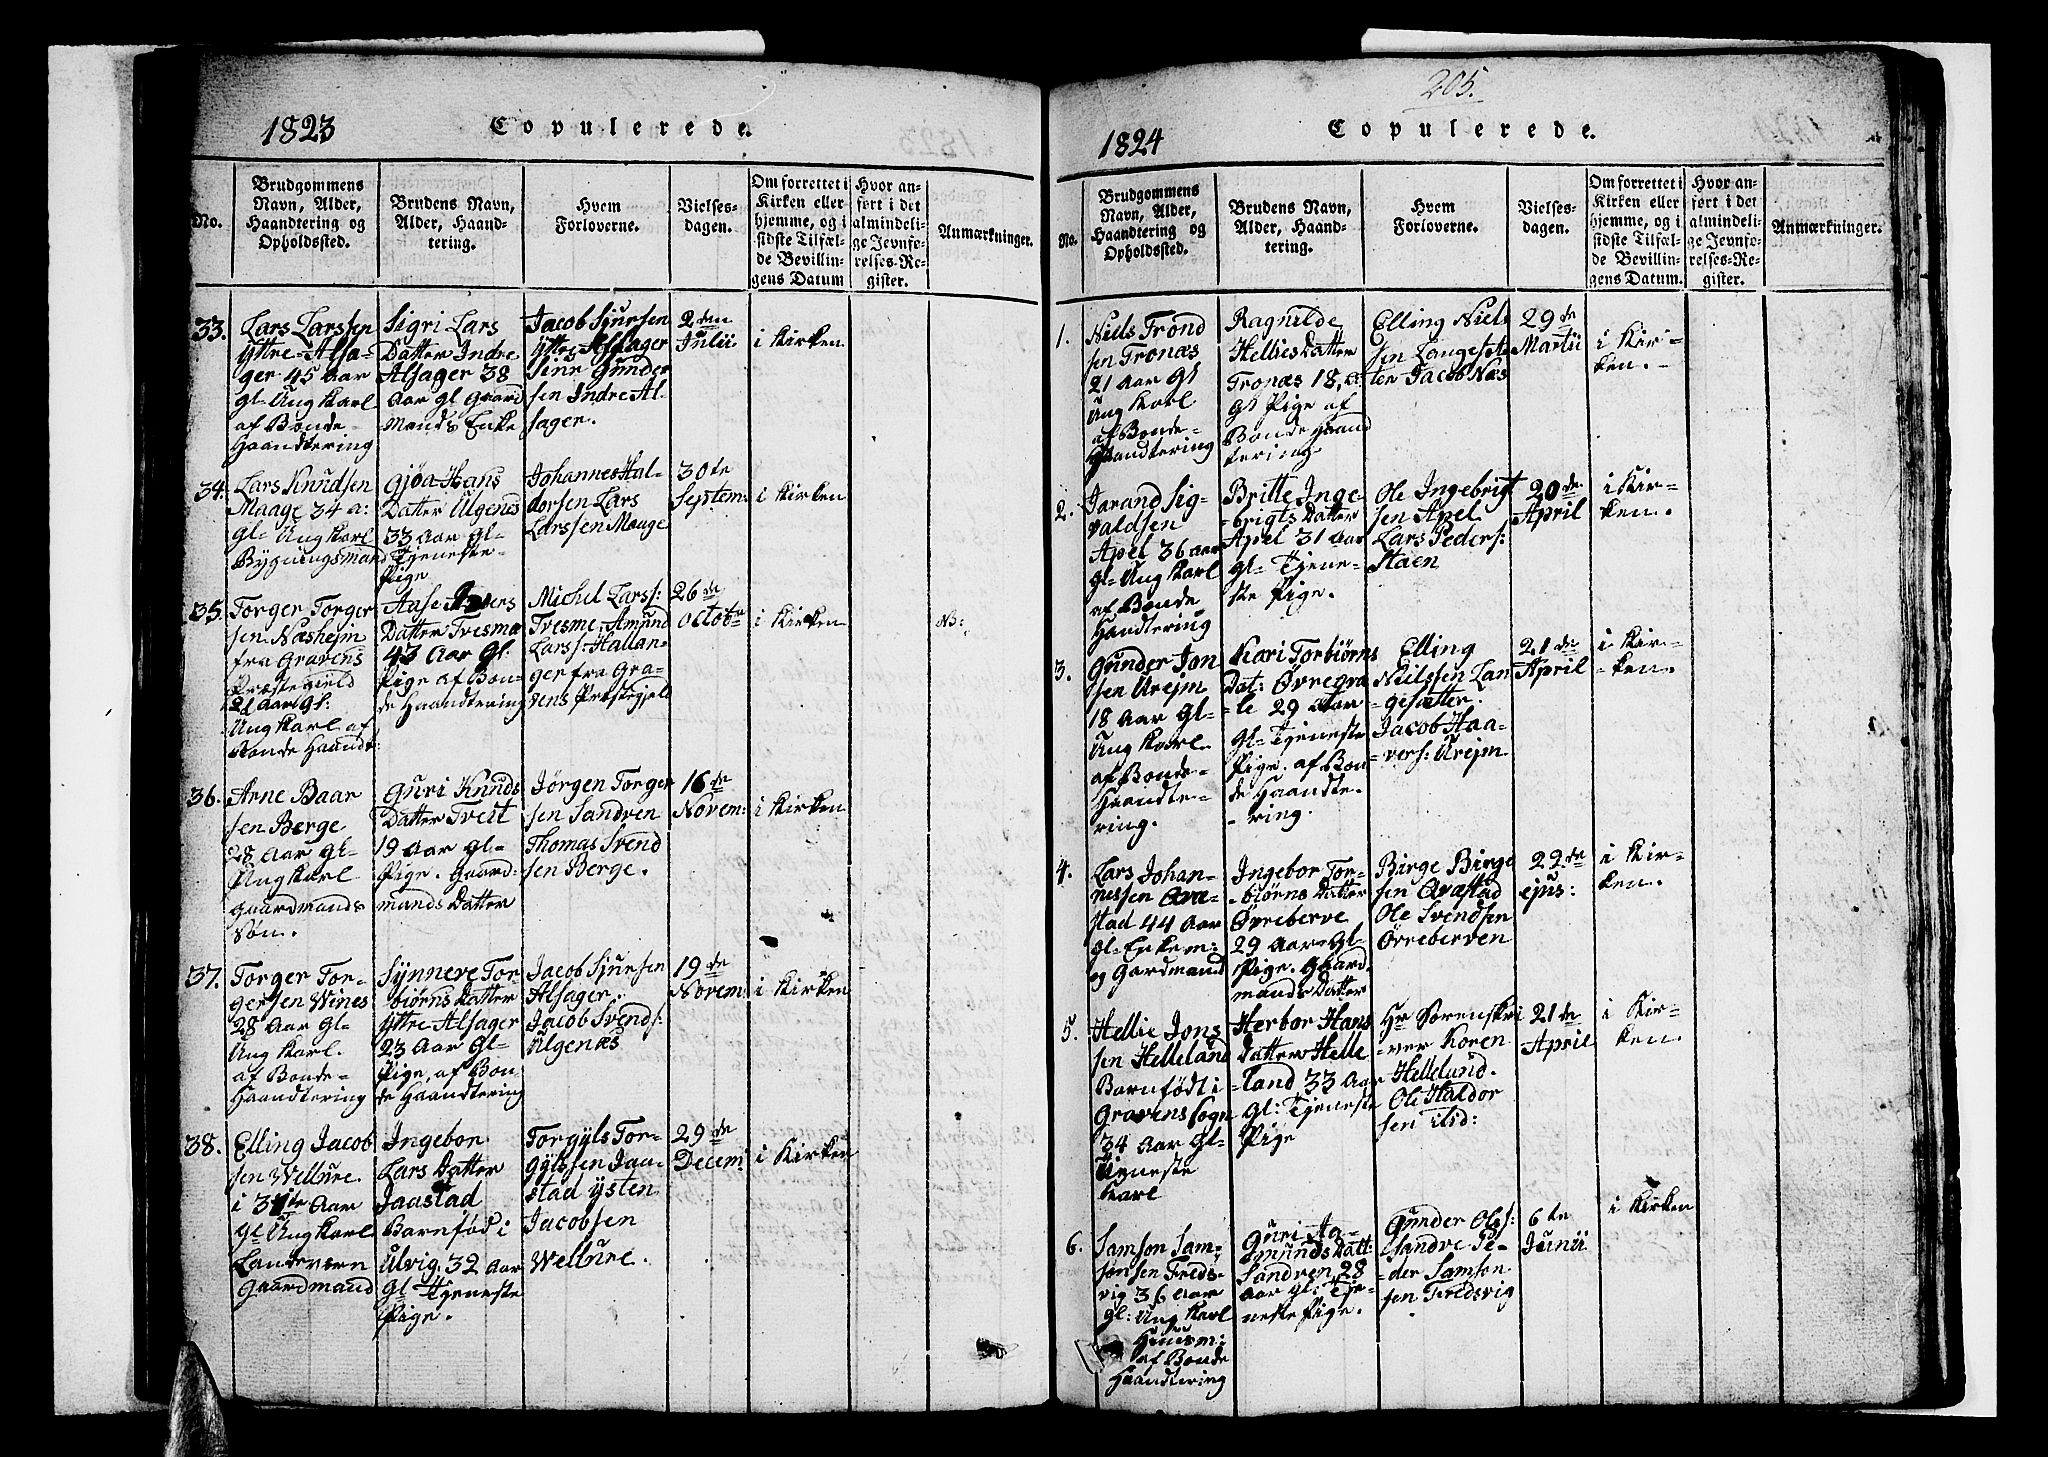 1823
Copulerede.
No.
Brudgommens
Navn, Alder,
Haandtering og
Opholdssted.
Brudens Navn,
Alder, Haand-
tering.
Hvem
Forloverne.
Vielses-
dagen.
Om forrettet i
Kirken eller
hjemme, og i
sidste Tilfæl-
de Bevillin-
gens Datum
Hvor an-
ført i det
almindeli-
ge Jevnfø-
relses-Re-
gister.
Anmærkninger.
33.
Lars Larssen
Yttre-Alsa-
ger 45 Aar
gl- Ung Karl
af Bonde-
Haandtering
Sigri Lars
Datter Indre
Alsager 38
Aar gl Gaard
Mands Enke
Jacob Sjursen
Yttre Alsager
Sjur Gunder
sen Indre Al-
sager.
2den
Julii.
i Kirken
34.
Lars Knudsen
Maage 34 a:
gl- Ung Karl
Bygningsmand
Gjøa Hans
Datter Ulgenes
33 Aar gl-
Tjeneste-
Pige
Johannes Hal-
dorsen Lars
Larssen Mauge
30te
Septem:
i Kirken
35.
Torger Torger
sen Næshejm
fra Gravens
Præstegield
21 Aar gl:
Ung Karl af
Bonde Haandt:
Aase
Datter Tresmæ
43 Aar gl:
Pige af Bon-
de Haandtering
Michel Larss:
Tresme. Amund
Larss: Hallan-
ger fra Gra-
vens Præstegjeld
26de
Octob
i Kirken
N:
36.
Arne Baar
sen Berge
28 Aar gl-
Ung Karl
gaardmands
Søn.
Guri Knuds
Datter Treit
19 Aar gl-
Pige. Gaard-
mands Datter
Jørgen Torger
sen Sandven
Thomas Svend
sen Berge.
16de
Novem:
i Kirken
37.
Torger Tor-
gersen Wines
28 Aar gl-
Ung Karl.
af Bonde-
Haandtering
Synneve Tor-
biørns Datter
Yttre Alsager
23 Aar gl-
Pige, af Bon-
de Haandtering
Jacob Sjursen
Alsager.
Jacob Svends:
Ulgenæs
19de
Novem:
i Kirken
38.
Elling Jacob
sen Wellure.
i 31te Aar
gl Ung Karl
Landeværn
Gaardmand
Ingebor
Lars Datter
Jaastad
Barnfød i
Ulvig. 32 Aar
gl- Tjeneste
Pige.
Torgyls Tor-
gylssen Jaa-
stad Ysten
Jacobsen
Wellure.
29de
Decem:
i Kirken
205.
1824
Copulerede.
No.
Brudgommens
Navn, Alder,
Haandtering og
Opholdssted.
Brudens Navn,
Alder, Haand-
tering.
Hvem
Forloverne.
Vielses-
dagen.
Om forrettet i
Kirken eller
hjemme, og i
sidste Tilfæl-
de Bevillin-
gens Datum.
Hvor an-
ført i det
almindeli-
ge Jevnfø-
relses-Re-
gister.
Anmærkninger.
1.
Niels Trond
sen Tronæs
21 Aar gl
Ung Karl
af Bonde-
Haandtering
Ragnilde
Hellies Datter
Tronæs 18, a
gl Pige af
Bonde Haand
tering
Elling Niels
sen Langesæt
ter Jacob Næs
29de
Martii
i Kir-
ken.
2.
Jarand Sig-
valdsen
Apel 36 aar
gl- Ung Karl
af Bonde
Haandtering
Britte Inge-
-brigts Datter
Apel 31 Aar
gl- Tjene-
ste Pige.
Ole Ingebrigt
sen Apel
Lars Peders:
Staen
20de
April
i Kir-
ken.
3.
Gunder Jon
sen Urejm
18 Aar gl-
Ung Karl.
af Bonde-
Haandte-
ring.
Kari Torbiørns
Dat: Øvregra
-le 29 Aar
gl- Tjeneste
Pige. af Bon-
de Haandte-
-ring.
Elling
Neilssen Lan
-gesætter.
Jacob Haa-
vers: Urejm
21de
April
i Kir-
-ken.
4.
Lars Johan-
nessen Ava-
stad 44 Aar
gl- Enkem:
og Gardmand
Ingebor Tor-
-biørns Datter
Øvreberve
29 Aar gl-
Pige. Gaard.
mands Datter
Birge Birge
sen Avastad
Ole Svendsen
Øvreberven
22de
ejus:
i Kir-
ken.
5.
Hellie Jons
sen Helleland
Barnfødt i
Gravens Sogn
34 Aar gl-
Tjeneste
Karl
Herbor Hans
Datter Helle
-land 33 Aar
gl: Tjeneste
Pige
Hr Sorenskri
-ver Koren
Hellelund.
Ole Haldor
sen Lid:
21de
April
i Kir-
ken.
6.
Samson Sam-
sonsen Freds-
vig 36 Aar
gl: Ung Karl
Huusm:
af Bonde
Haandtering
Guri Aa-
munds Datt:
Sandven 28
Aar gl: Tje-
neste Pige.
Gunder Olss:
Sandve Pe-
-der Samson
sen Fredsvig
6te
Junii
i Kirken